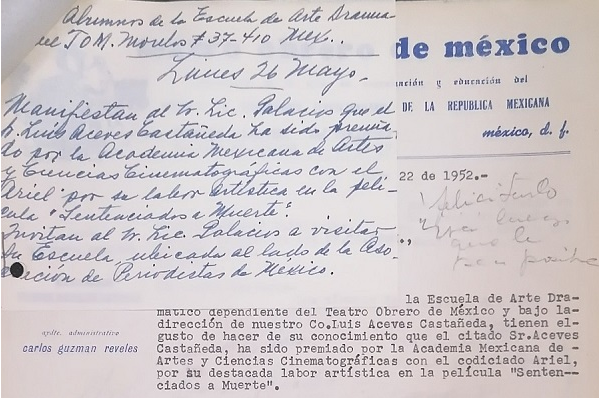 Alumnos de la Escuela de Arte Drama-
del T.O.M. Morelos #37-410 Mex..
Lunes 26 Mayo.
Manifiestan al Sr. Lic. Palacios que el
Sr. Luis Aceves Castañeda ha sido premia-
do por la Academia Mexicana de Artes
y Ciencias Cinematográficas con el
"Ariel" por su labor artística en la pelí-
cula "Sentenciados a Muerte".
Invitan al Sr. Lic. Palacios a visitar
su Escuela, ubicada al lado de la Aso-
ciación de Periodistas de México.
de méxico
y educación del
DE LA REPUBLICA MEXICANA
méxico, d. f.
22 de 1952.-
felicitarlo
que le
sea
aydte. administrativo
carlos guzman reveles
la Escuela de Arte Dra-
mático dependiente del Teatro Obrero de México y bajo la-
dirección de nuestro Co.Luis Aceves Castañeda, tienen el-
gusto de hacer de su conocimiento que el citado Sr.Aceves
Castañeda, ha sido premiado por la Academia Mexicana de -
Artes y Ciencias Cinematográficas con el codiciado Ariel,
por su destacada labor artística en la película "Senten--
ciados a Muerte".